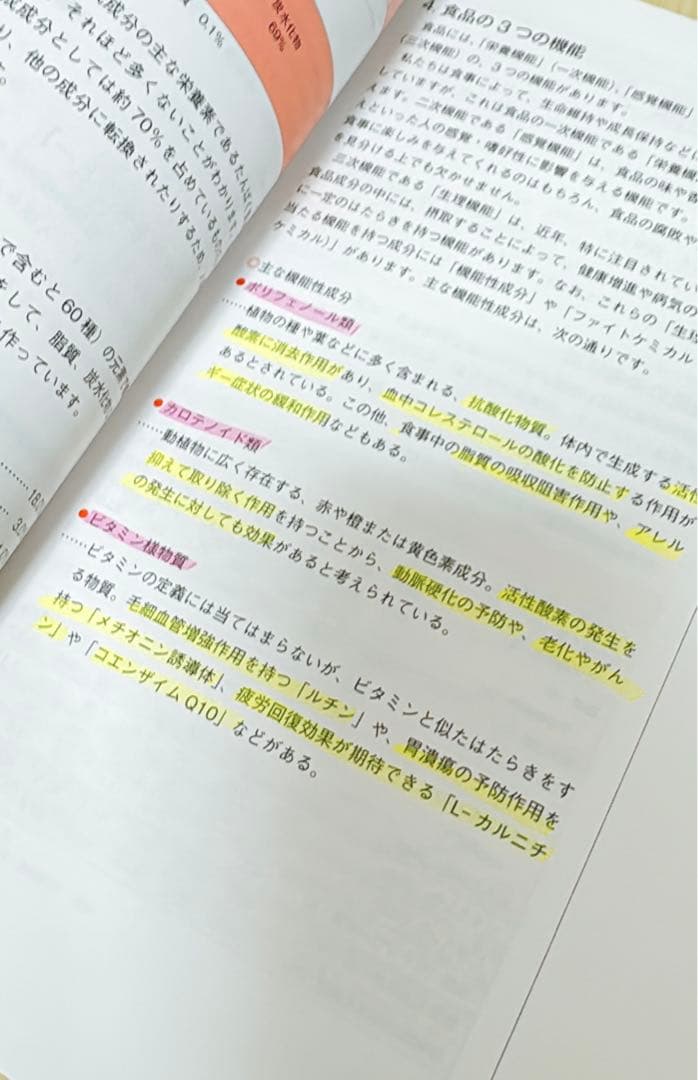 炭水化物
69%
0.1%
成分の主な栄養素であるたんぱく
それほど多くないことがわかります
成成分としては約70%を占めているもの
り、他の成分に転換されたりするため、
す。
で含むと60種）の元素
をして、脂質、炭水化物
作っています。
4 食品の3つの機能
食品には、「栄養機能」（一次機能）、「感覚機能」
（三次機能）の、3つの機能があります。
私たちは食事によって、生命維持や成長保持など
していますが、これは食品の一次機能である「栄養機
えます。二次機能である「感覚機能」は、食品の味や
えといった人の感覚・嗜好性に影響を与える機能です。
食事に楽しみを与えてくれるのはもちろん、食品の腐敗や
を見分ける上でも欠かせません。
三次機能である「生理機能」は、近年、特に注目されてい
食品成分の中には、摂取することによって、健康増進や病気の
に一定のはたらきを持つ機能があります。なお、これらの「生
当たる機能を持つ成分には「機能性成分」や「ファイトケミカル
ケミカル）」があります。主な機能性成分は、次の通りです。
◎主な機能性成分
●ポリフェノール類
……植物の種や葉などに多く含まれる、抗酸化物質。体内で生成する活性
酸素に消去作用があり、血中コレステロールの酸化を防止する作用が
あるとされている。この他、食事中の脂質の吸収阻害作用や、アレル
ギー症状の緩和作用などもある。
●カロテノイド類
……動植物に広く存在する、赤や橙または黄色素成分。活性酸素の発生を
抑えて取り除く作用を持つことから、動脈硬化の予防や、老化やがん
の発生に対しても効果があると考えられている。
●ビタミン様物質
……ビタミンの定義には当てはまらないが、ビタミンと似たはたらきをす
る物質。毛細血管増強作用を持つ「ルチン」や、胃潰瘍の予防作用を
持つ「メチオニン誘導体」、疲労回復効果が期待できる「L-カルニチ
ン」や「コエンザイムQ10」などがある。